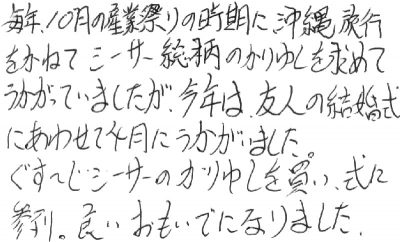 毎年、10月の産業祭りの時期に、沖縄旅行
をかねて シーサー総柄のかりゆしを求めて
うかがっていましたが、今年は、友人の結婚式
にあわせて4月にうかがいました。
ぐすーじシーサーのかりゆしを買い、式に
参列。良いおもいでになりました。